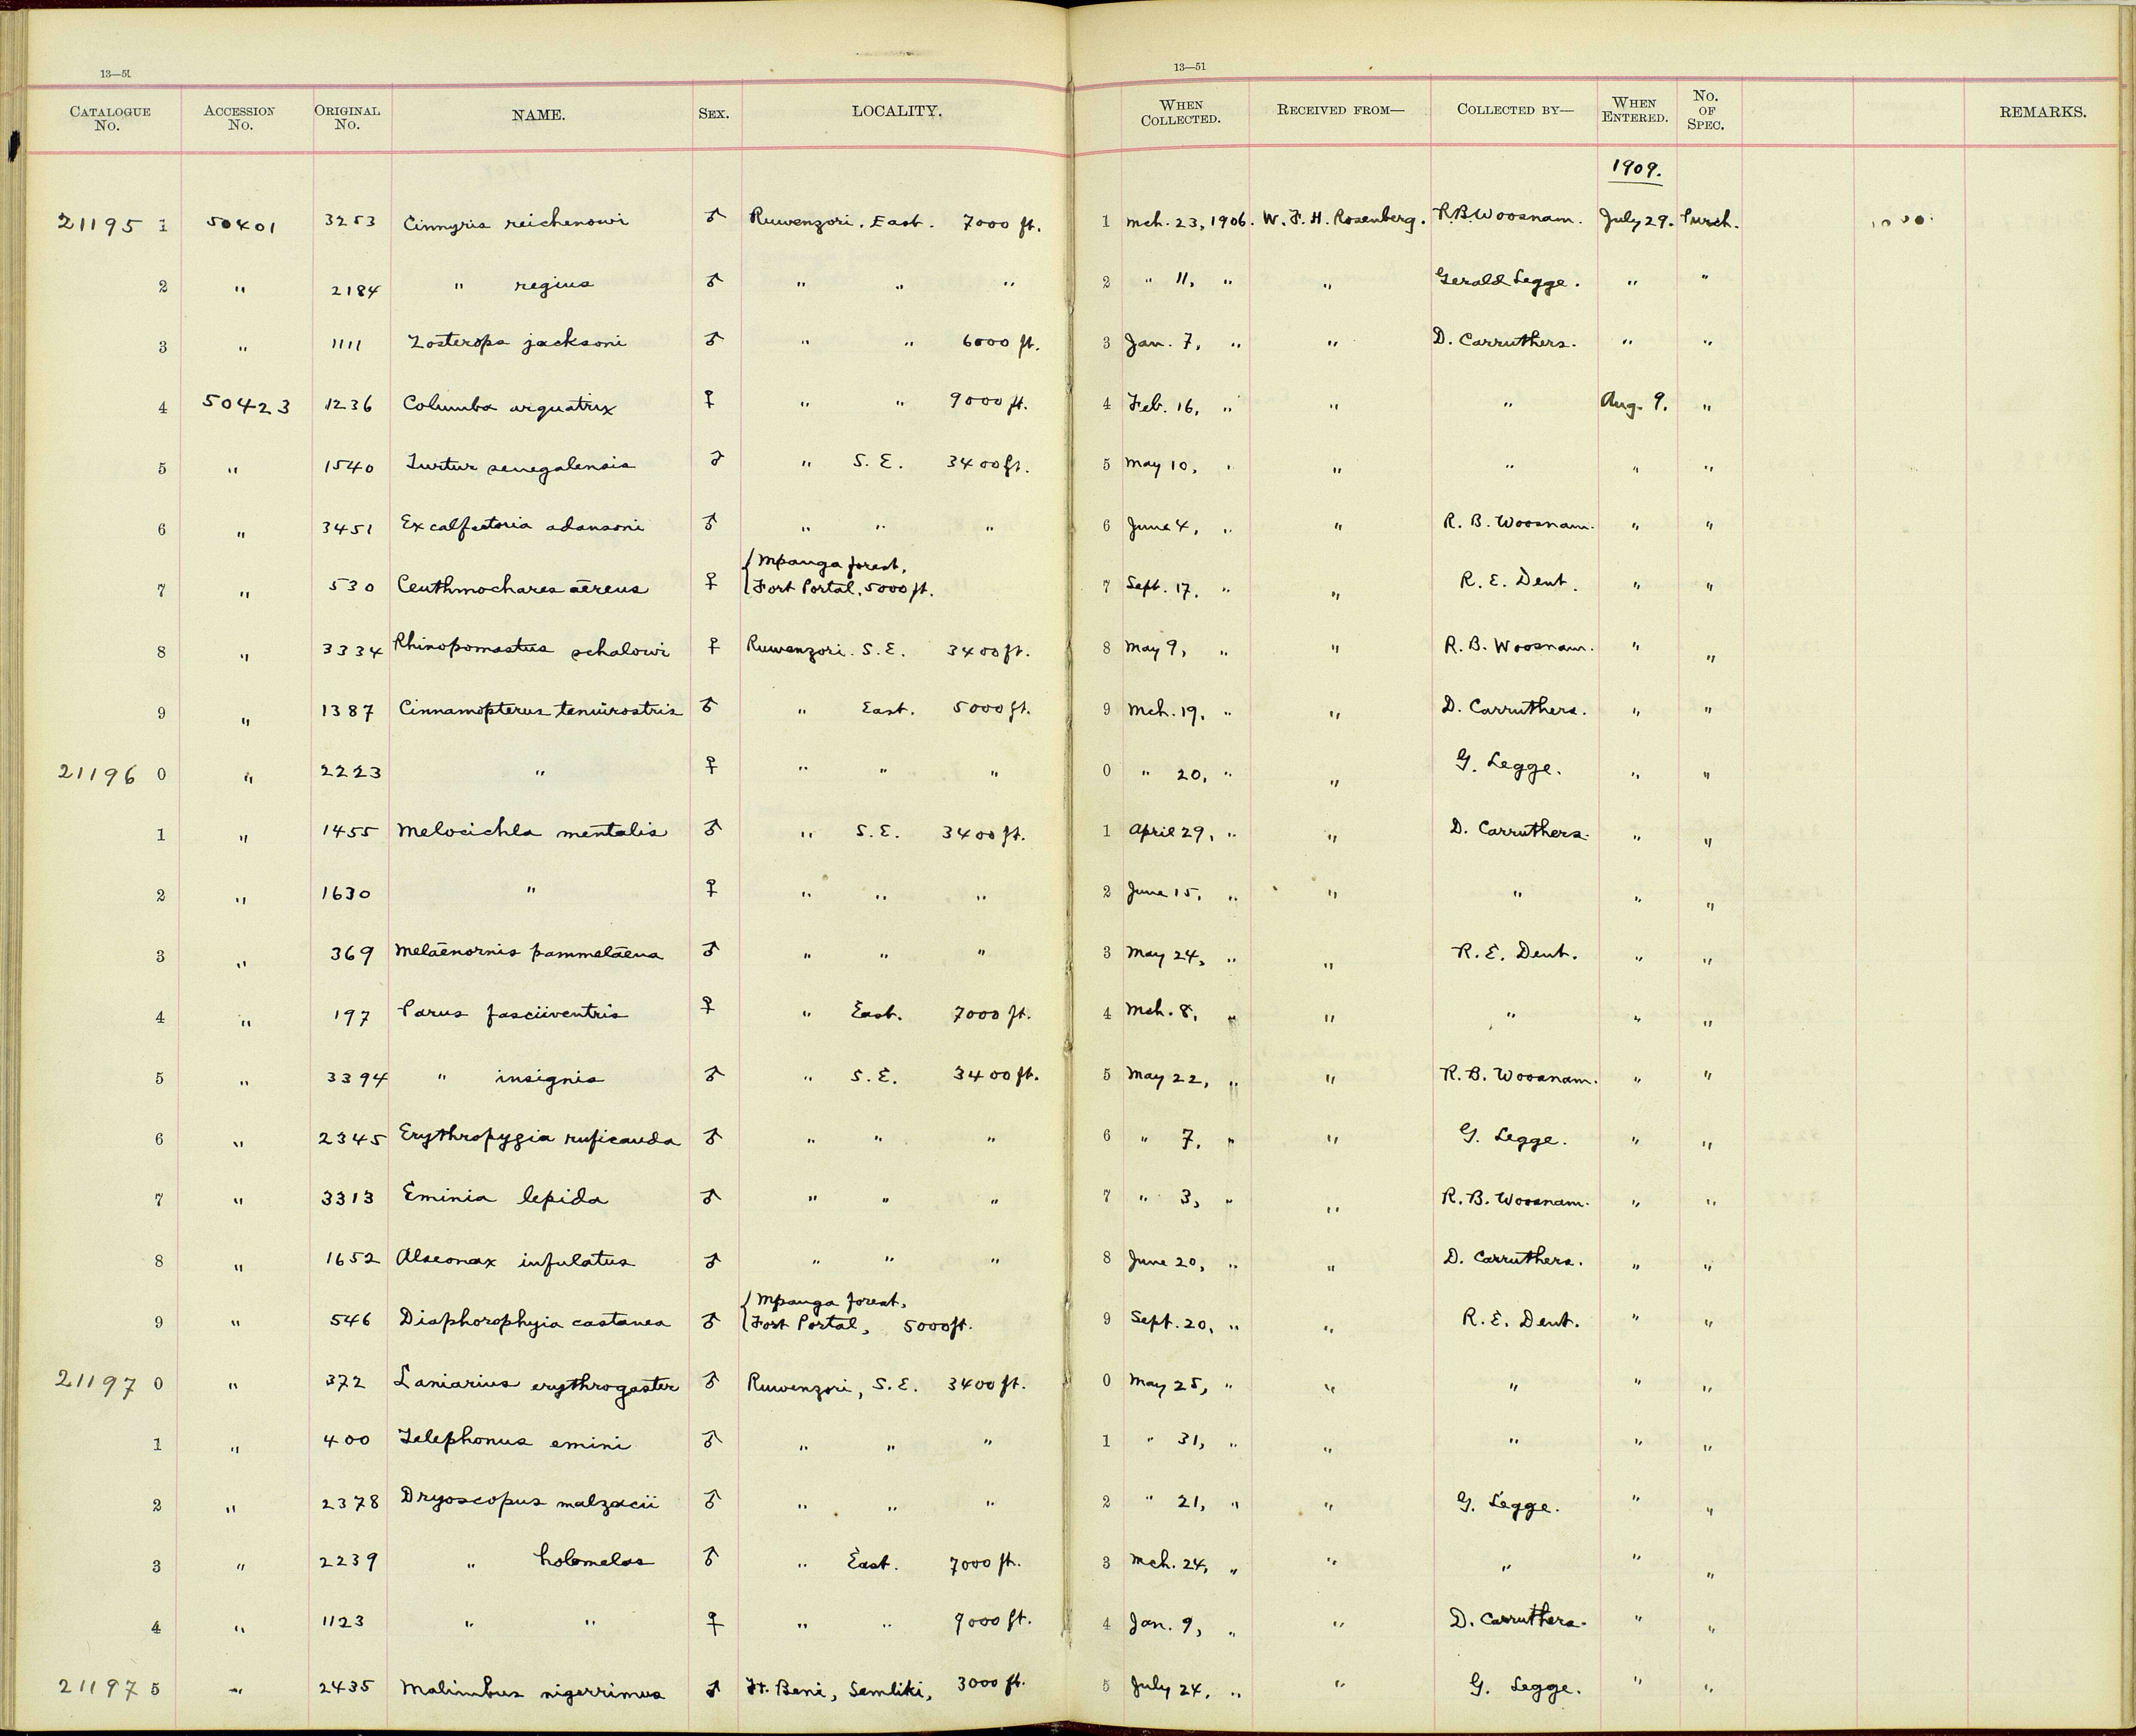 13—51
13—51
CATALOGUE No. ACCESSION No. ORIGINAL No. NAME. SEX. LOCALITY. WHEN COLLECTED. RECEIVED FROM— COLLECTED BY— WHEN ENTERED. No. OF SPEC. REMARKS.
1909.
21195 1 50401 3253 Cinnyris reichenowi ♂ Ruwenzori. East. 7000 ft. 1 Mch. 23, 1906. W. F. H. Rosenberg. R.B. Woosnam. July 29. Purch.
2 " 2184 " regius ♂ " " " 2 " 11, " " Gerald Legge. " "
3 " 1111 Zosterops jacksoni ♂ " " 6000 ft. 3 Jan. 7, " " D. Carruthers. " "
4 50423 1236 Columba arquatrix ♀ " " 9000 ft. 4 Feb. 16, " " " Aug. 9. "
5 " 1540 Turtur senegalensis ♂ " S. E. 3400 ft. 5 May 10, " " " " "
6 " 3451 Excalfactoria adansoni ♂ " " " 6 June 4, " " R. B. Woosnam. " "
7 " 530 Ceuthmochares aëreus ♀ { Mpanga forest, Fort Portal, 5000 ft. 7 Sept. 17, " " R. E. Dent. " "
8 " 3334 Rhinopomastus schalowi ♀ Ruwenzori. S. E. 3400 ft. 8 May 9, " " R. B. Woosnam. " "
9 " 1387 Cinnamopterus tenuirostris ♂ " East. 5000 ft. 9 Mch. 19, " " D. Carruthers. " "
21196 0 " 2223 " ♀ " " " 0 " 20, " " G. Legge. " "
1 " 1455 Melocichla mentalis ♂ " S. E. 3400 ft. 1 April 29, " " D. Carruthers. " "
2 " 1630 " ♀ " " " 2 June 15, " " " " "
3 " 369 Melaenornis pammelaena ♂ " " " 3 May 24, " " R. E. Dent. " "
4 " 197 Parus fasciiventris ♀ " East. 7000 ft. 4 Mch. 8, " " " " "
5 " 3394 " insignis ♂ " S. E. 3400 ft. 5 May 22, " " R. B. Woosnam. " "
6 " 2345 Erythropygia ruficauda ♂ " " " 6 " 7, " " G. Legge. " "
7 " 3313 Eminia lepida ♂ " " " 7 " 3, " " R. B. Woosnam. " "
8 " 1652 Alseonax infulatus ♂ " " " 8 June 20, " " D. Carruthers. " "
9 " 546 Diaphorophyia castanea ♂ { Mpanga forest, Fort Portal, 5000 ft. 9 Sept. 20, " " R. E. Dent. " "
21197 0 " 372 Laniarius erythrogaster ♂ Ruwenzori, S. E. 3400 ft. 0 May 25, " " " " "
1 " 400 Telephonus emini ♂ " " " 1 " 31, " " " " "
2 " 2378 Dryoscopus malzacii ♂ " " " 2 " 21, " " G. Legge. " "
3 " 2239 " holomelas ♂ " East. 7000 ft. 3 Mch. 24, " " " " "
4 " 1123 " " ♀ " " 9000 ft. 4 Jan. 9, " " D. Carruthers. " "
21197 5 " 2435 Malimbus nigerrimus ♂ Ft. Beni, Semliki, 3000 ft. 5 July 24, " " G. Legge. " "